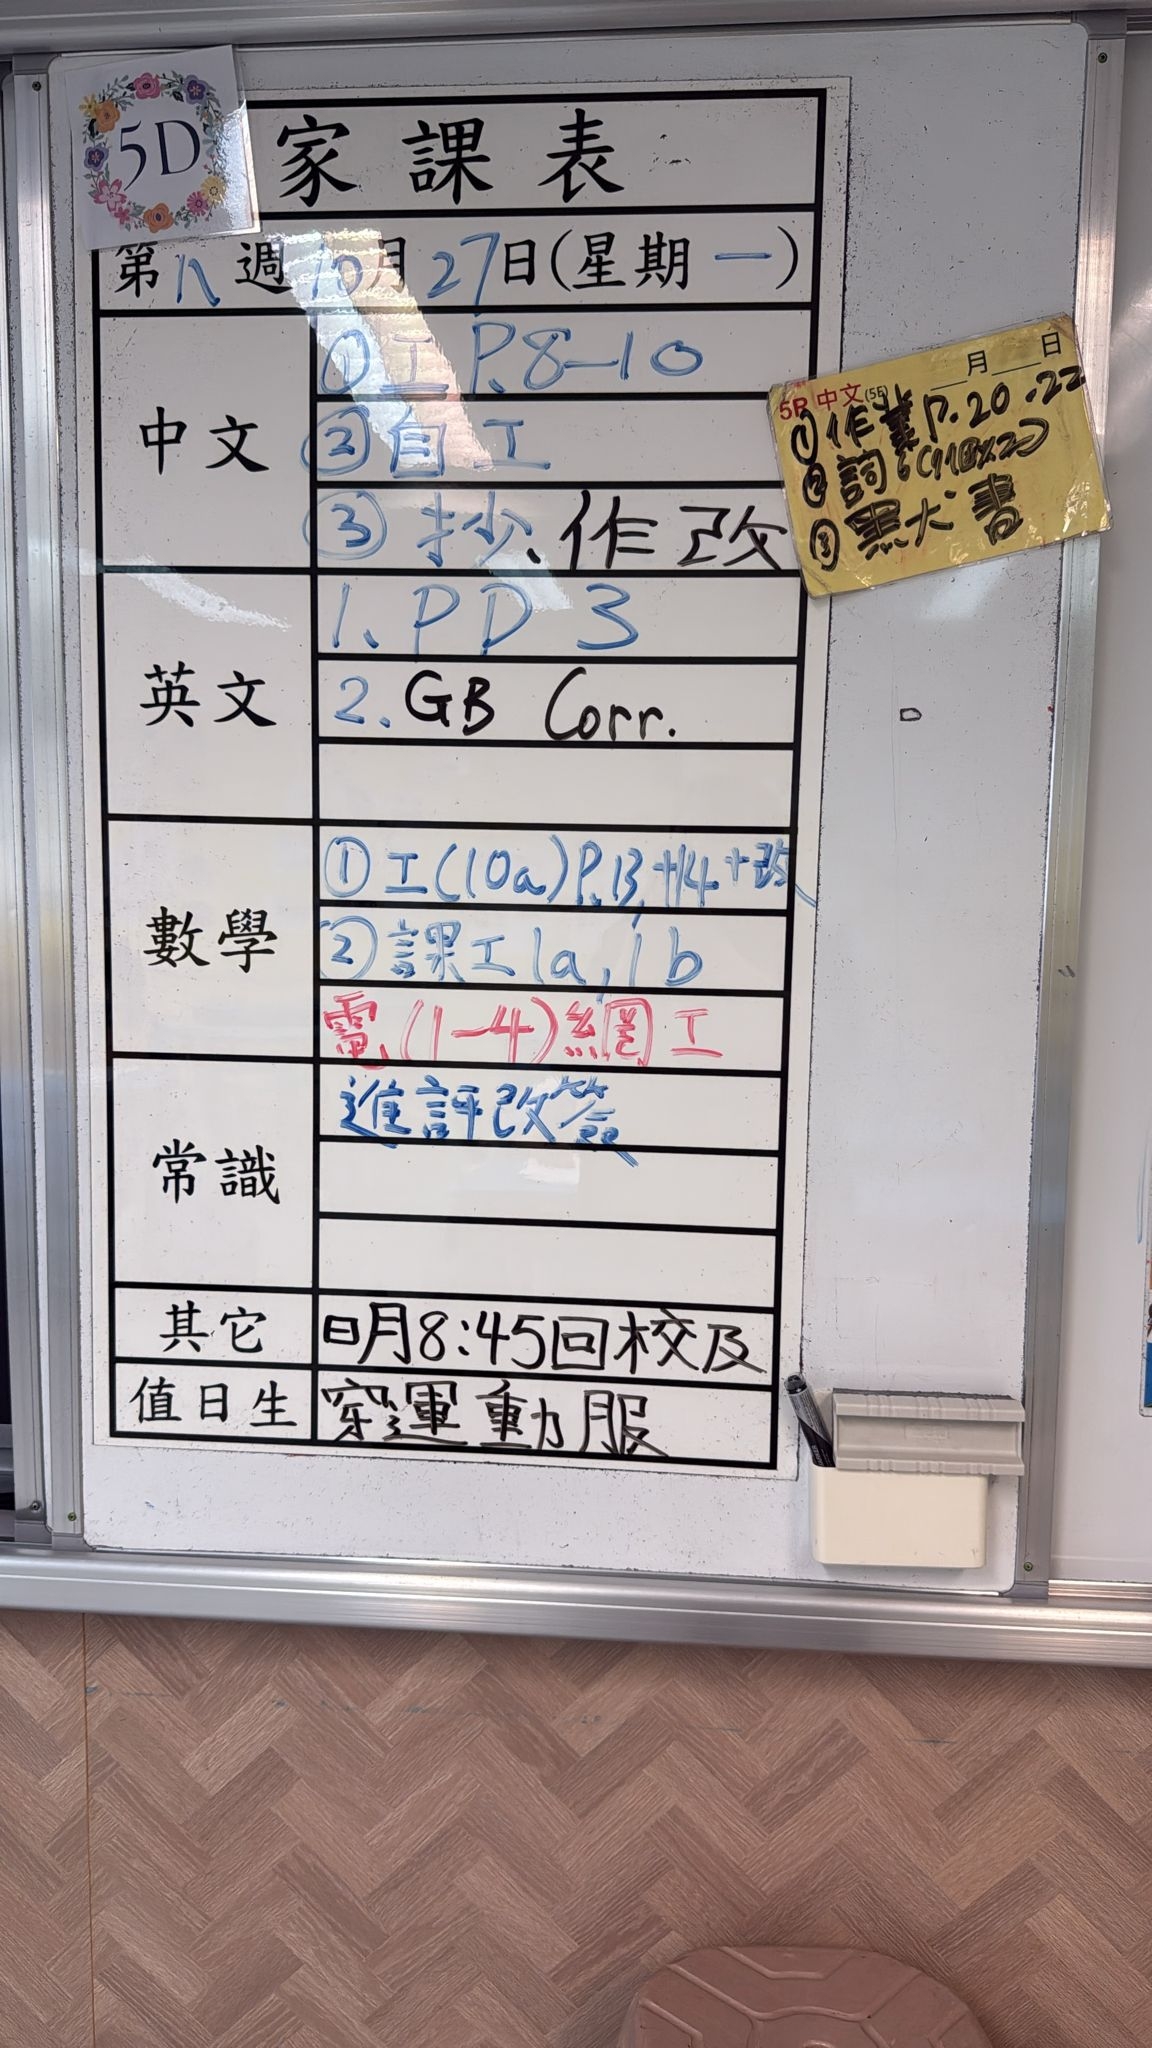 5D
家課表
第八週10月27日(星期一)
中文
①工P.8-10
②自工
③抄、作改
英文
1. PD 3
2. GB Corr.
數學
①工(10a)P.13,14+改
②課工1a,1b
電(1-4)網工
常識
進評改簽
其它
日月8:45回校及
值日生
穿運動服
月 日
5R 中文(5E)
①作業P.20.22
②詞6
③黑犬書